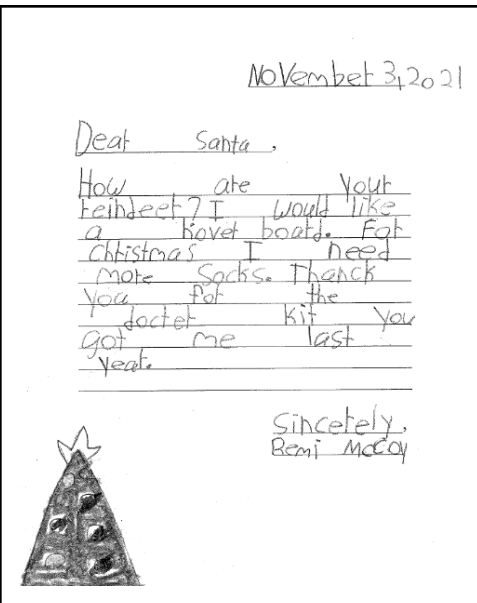 November 3, 2021
Dear Santa,
How are your
reindeer? I would like
a hover board. For
Christmas I need
more socks. Thanck
you for the
docter kit you
got me last
year.
Sincerely,
Remi McCoy